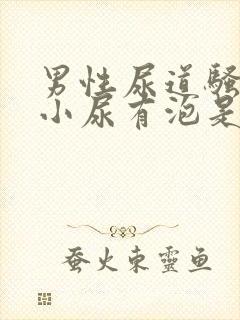 男性尿道骚
小尿有泡是
蚕火东靈鱼